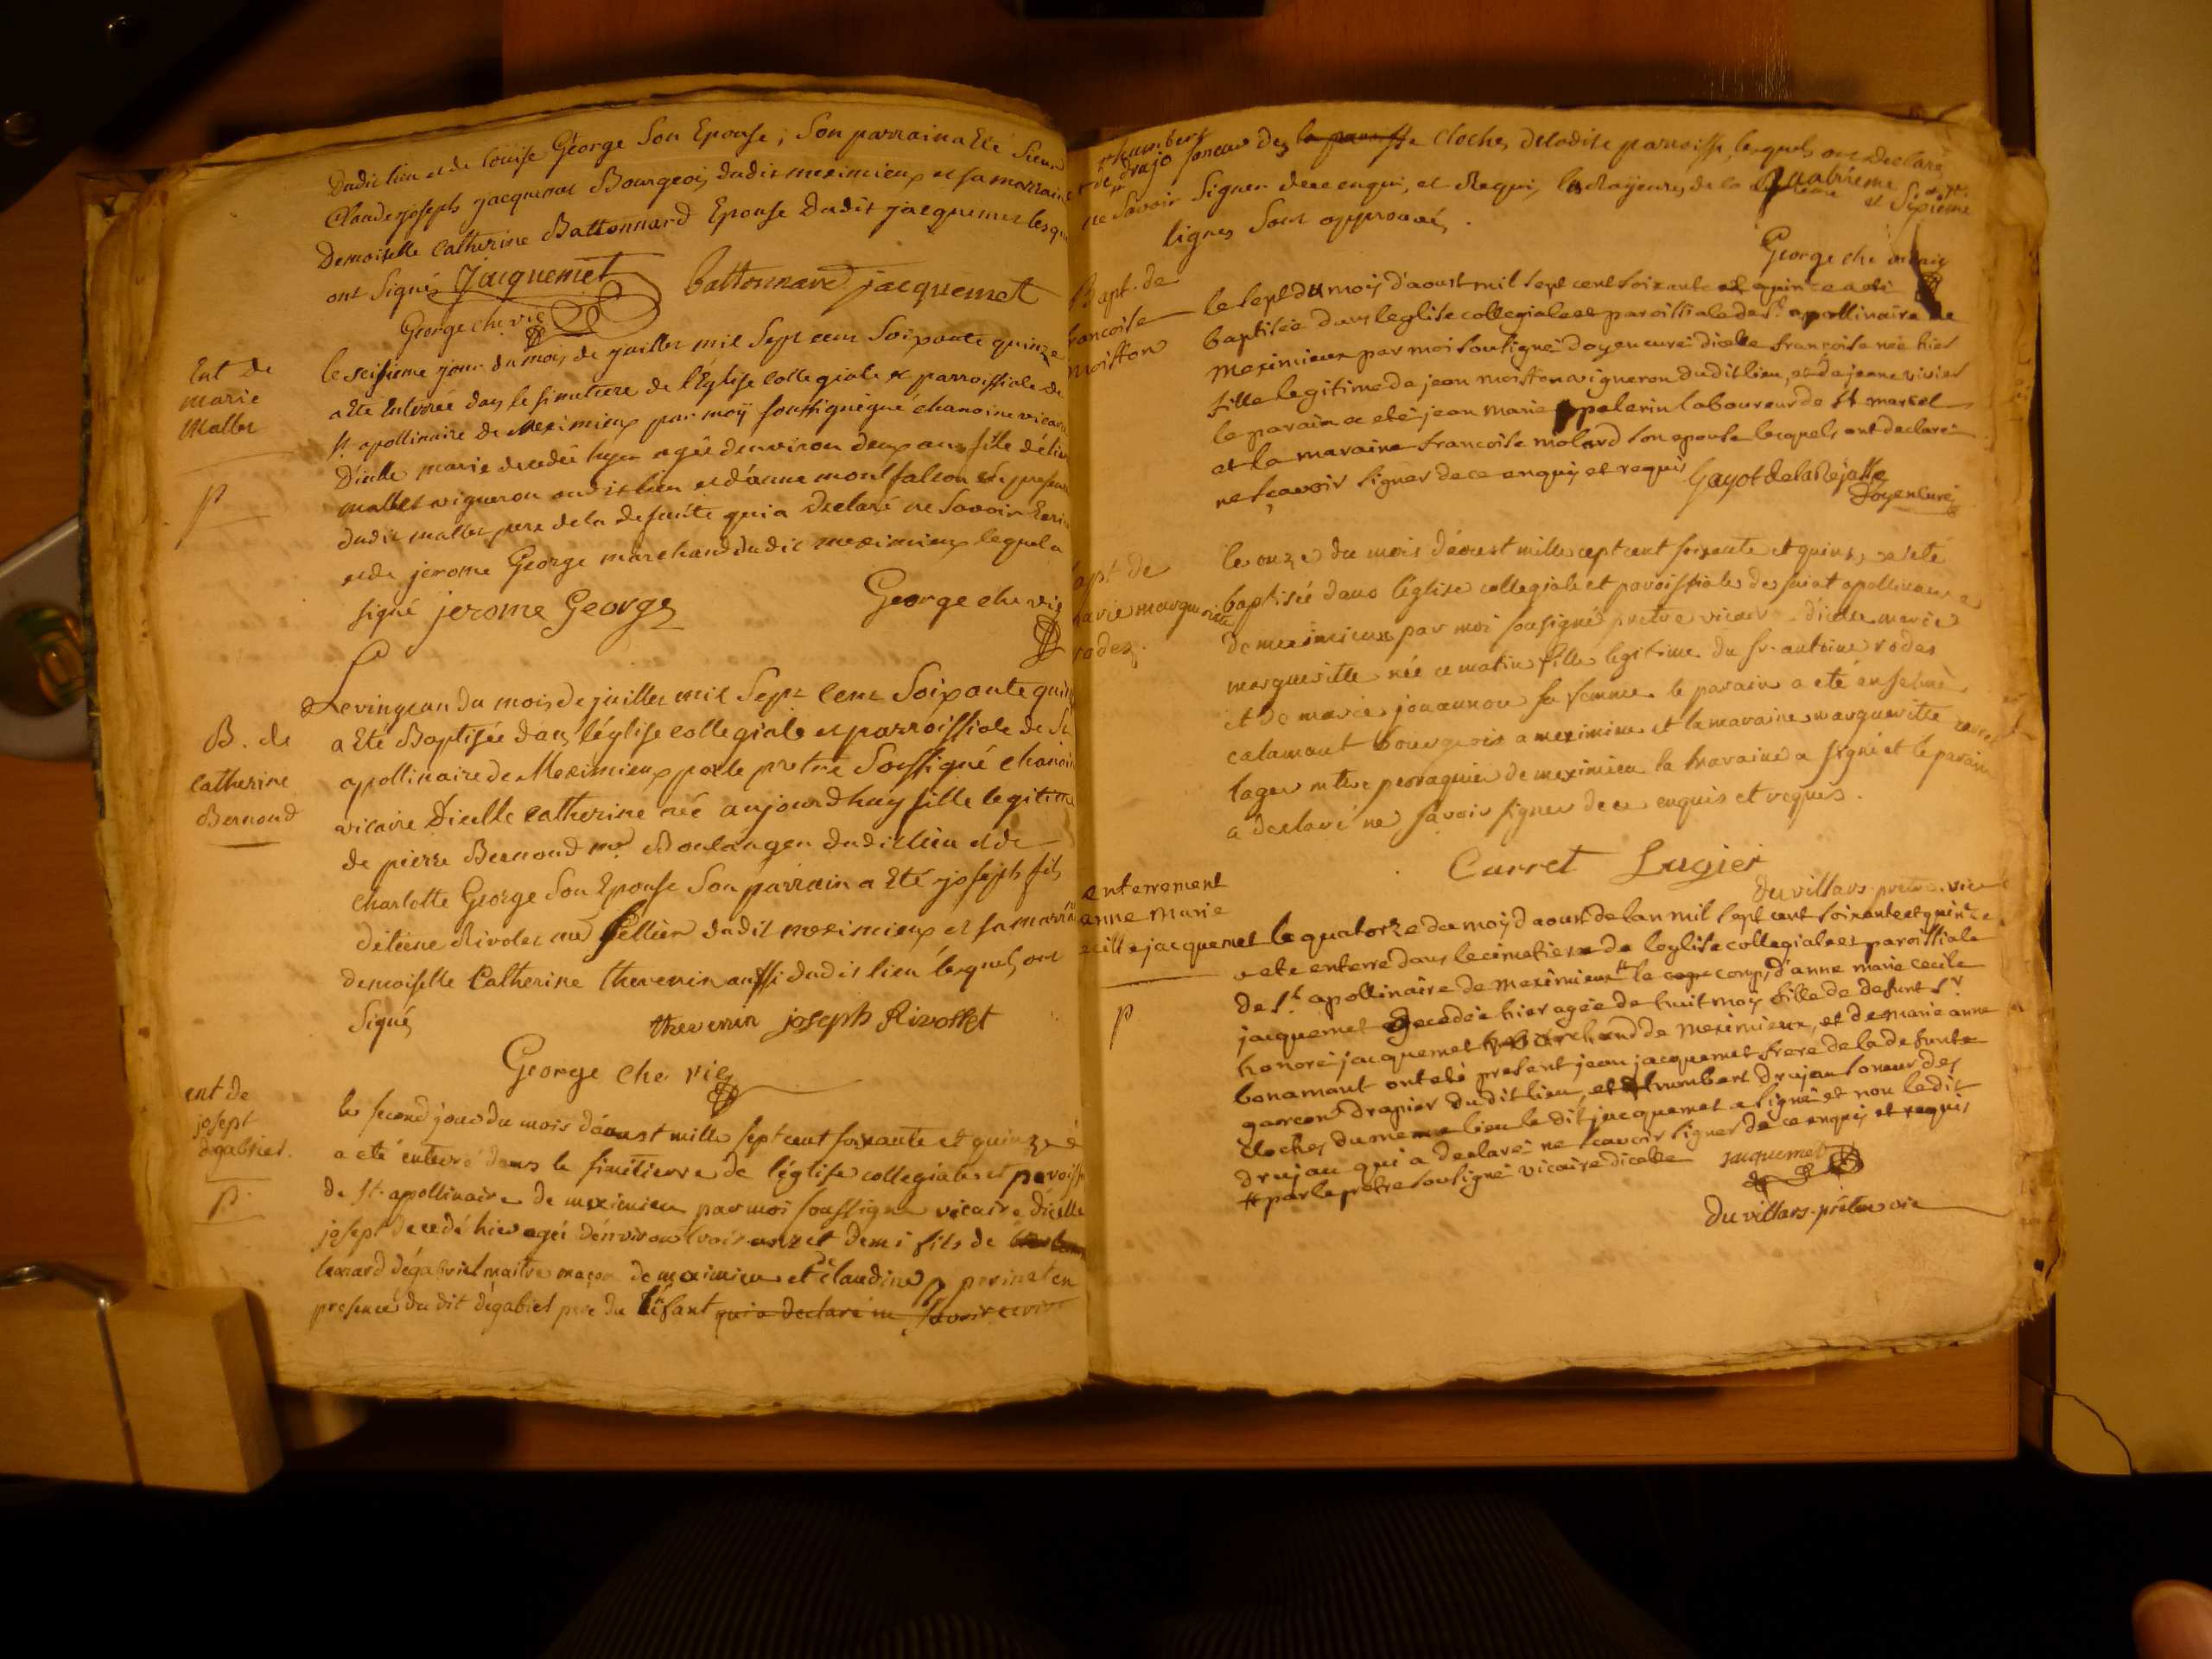 dudit lieu et de Loüise George Son Epouse ; Son parrain a Eté Sieur
Claude joseph jacquemet Bourgeois dudit meximieux et sa marraine
Demoiselle Catherine Battonnard Epouse Dudit jacquemet lesquels
ont Signés Jacquemet battonnard jacquemet
George che vic
Ent de
marie
Mallet
le seisieme jour du mois de juillet mil Sept cens Soixante quinze
a Eté Enterrée dans le simetiere de l'Eglise Collegiale et parroissiale de
st. apollinaire de Meximieux par moÿ soussigné chanoine vicaire
D'icelle marie decedée hyer agée denviron deux ans fille d'étiene
mallet vigneron audit lieu et d'anne montfalcon En presence
dudit mallet pere de la defunte qui a Declaré ne Savoir Ecrire
et de jerome George marchand dudit meximieux lequel a
signé jerome George George che vic
p
B. de
Catherine
Bernoud
Le vingt un du mois de juillet mil Sept Cens Soixante quinze
a Eté Baptisée dans l'église collegiale et parroissiale de St
apollinaire de Meximieux par le pretre Soussigné chanoine
vicaire D'icelle Catherine née aujourdhuy fille legitime
de pierre Bernoud me. Boulanger dudit lieu et de
Charlotte George Son Epouse Son parrain a Eté joseph fils
d'étiene Rivolet me Sellier dudit meximieux et sa marraine
demoiselle Catherine thevenin aussi dudit lieu lesquels ont
Signés thevenin joseph Rivollet
George che vic
ent de
josept
dégabriel.
p.
le second jour du mois d'aoust mille sept cent soixante et quinze
a eté enterré dans le simetierre de l'église collegiale et paroiss
de St. apollinaire de meximieu par moi soussigné vicaire dicelle
josept decedé hier agéé d'environ trois ans et demi fils de
leonard dégabriel maitre maçon de meximieu et de claudine perinet en
presence du dit dégabriel pere du l'éfant qui a declaré ne savoir ecrire
et de humbert
drujo soneur des la paroisse cloches deladite parroisse lesquels ont declaré
ne Savoir Signer dece enquis, et Requis, les Rayeures de la quatrieme et Sixieme
lignes Sont approuvés.
George che vicaire
Bapt. de
francoise
moisson
le sept du mois d'aoust mil sept cent soixante et quinze a eté
baptisée dans leglise collegiale et paroissiale de St. apollinaire de
meximieux par moi soussigné doyen curé dicelle francoise née hier
fille legitime de jean moisson vigneron dudit lieu, et de jeanne vivier
le parain a eté jean marie pelerin laboureur de St marcel
et la maraine francoise molard son epouse lesquels ont declaré
ne sçavoir signer de ce enquis et requis Gayot de la Rejasse
doyen curé
bapt de
marie marguerite
rodez.
le onze du mois d'aoust mille cept cent soixante et quinze a eté
baptisée dans l'église collegiale et paroissiale de saint apollinaire
de meximieux par moi sousigné pretre vicair d'icelle marie
marguerite née ce matin fille legitime du sr. antoine rodes
et de marie jouannon sa femme le parain a eté anselme
calamant bourgeois a meximieu et la maraine marguerite carret
lager mtre perraquier de meximieu la maraine a signé et le parain
a declaré ne savoir signer de ce enquis et requis.
Carret Lugier
Du villars pretre vic
enterrement
anne Marie
cecille jacquemet
p
le quatorze du moy daoust de lan mil sept cent soixante et quinze
a ete enterré dans le cimetiere de leglise collegiale et paroissiale
de St. apollinaire de meximieux # le corps d'anne marie cecile
jacquemet decedée hier agée de huit moy fille de defunt Sr
honoré jacquemet marchand de meximieux, et de marie anne
bonamant ont eté present jean jacquemet frere de la defunte
garcons drapier dudit lieu, et humbert drujau soneur des
cloches du meme lieu le dit jacquemet a signé et non le dit
drujau qui a declaré ne scavoir signer de ce enquis et requis
# par le pretre sousigné vicaire dicelle jacquemet
Du villars prêtre vic